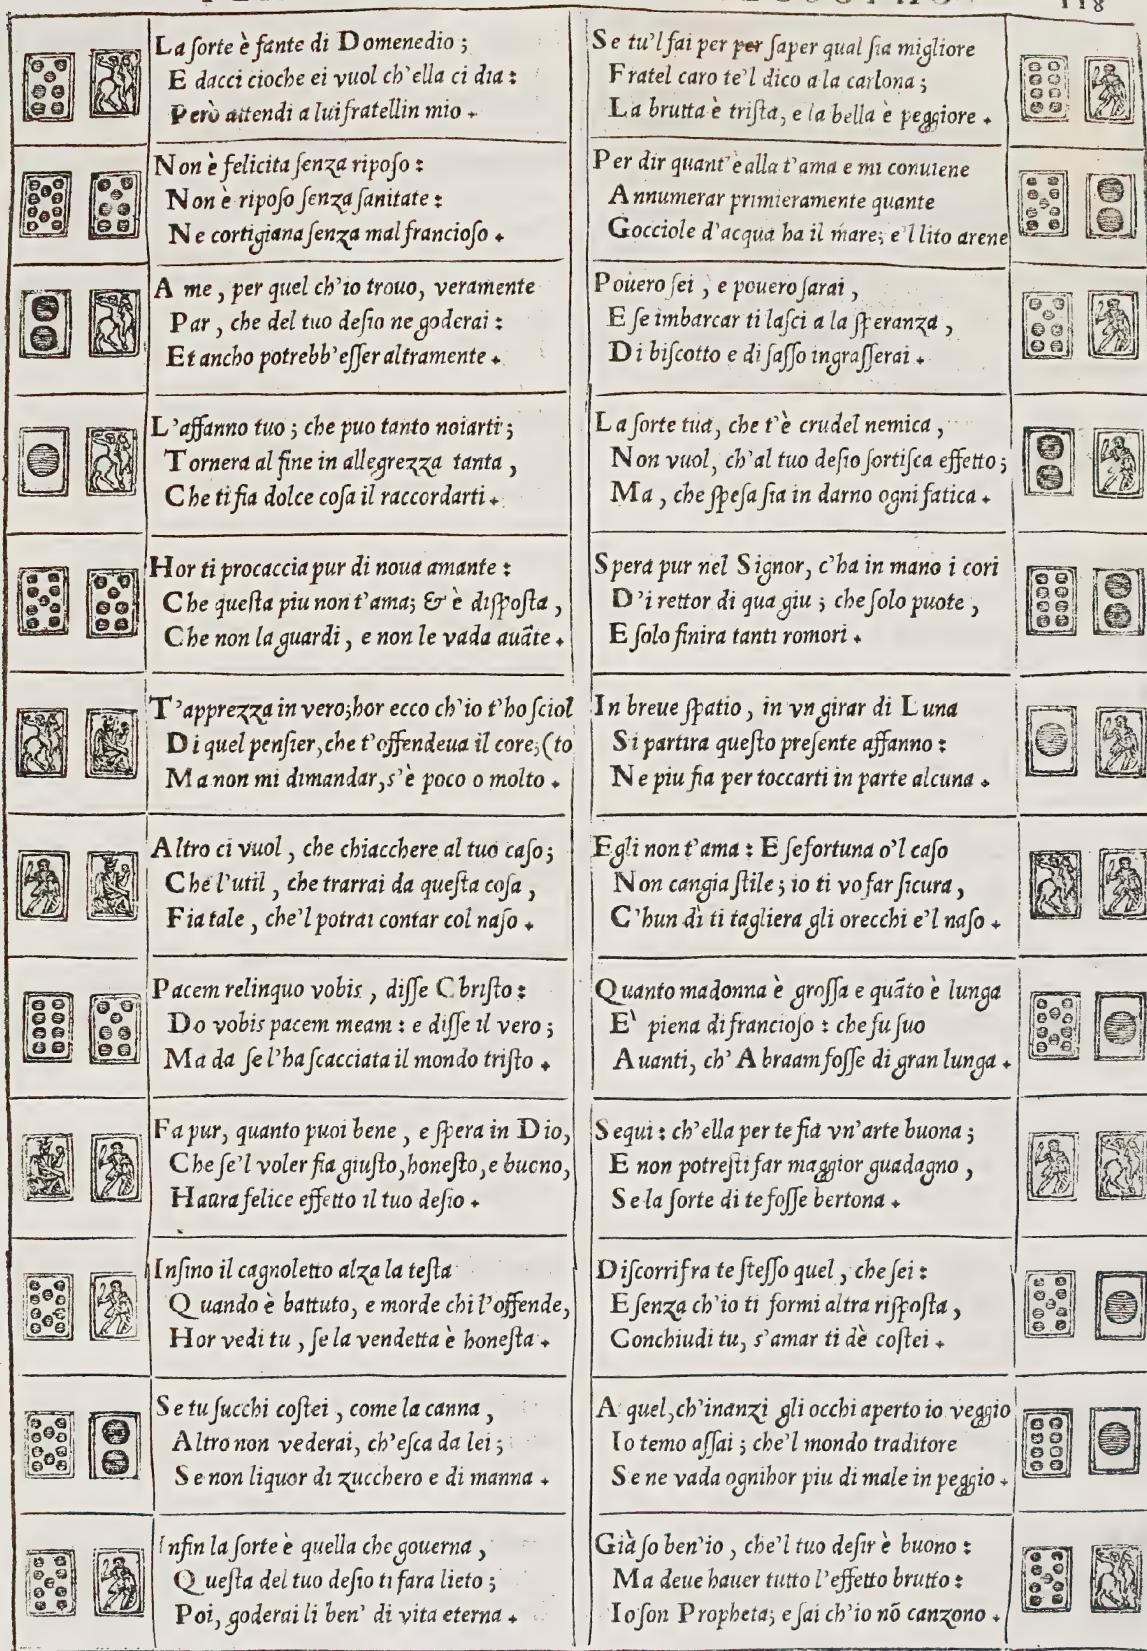 118
La ſorte è fante di Domenedio ;
E dacci cioche ei vuol ch'ella ci dia :
Però attendi a lui fratellin mio .
Non è felicita ſenza ripoſo :
Non è ripoſo ſenza ſanitate :
Ne cortigiana ſenza mal francioſo .
A me , per quel ch'io trouo, veramente
Par , che del tuo deſio ne goderai :
Et ancho potrebb'eſſer altramente .
L'affanno tuo ; che puo tanto noiarti ;
Tornera al fine in allegrezza tanta ,
Che ti fia dolce coſa il raccordarti .
Hor ti procaccia pur di noua amante :
Che queſta piu non t'ama; & è diſpoſta ,
Che non la guardi , e non le vada auāte .
T'apprezza in vero;hor ecco ch'io t'ho ſciol
Di quel penſier, che t'offendeua il core;(to
Ma non mi dimandar, s'è poco o molto .
Altro ci vuol , che chiacchere al tuo caſo ;
Che l'util , che trarrai da queſta coſa ,
Fia tale , che'l potrai contar col naſo .
Pacem relinquo vobis , diſſe Chriſto :
Do vobis pacem meam : e diſſe il vero ;
Ma da ſe l'ha ſcacciata il mondo triſto .
Fa pur, quanto puoi bene , e ſpera in Dio,
Che ſe'l voler fia giuſto, honeſto, e buono,
Haura felice effetto il tuo deſio .
Inſino il cagnoletto alza la teſta
Quando è battuto, e morde chi l'offende,
Hor vedi tu , ſe la vendetta è honeſta .
Se tu ſucchi coſtei , come la canna ,
Altro non vederai, ch'eſca da lei ;
Se non liquor di zucchero e di manna .
Infin la ſorte è quella che gouerna ,
Queſta del tuo deſio ti fara lieto ;
Poi, goderai li ben' di vita eterna .
Se tu'l fai per per ſaper qual ſia migliore
Fratel caro te'l dico a la carlona ;
La brutta è triſta, e la bella è peggiore .
Per dir quant'è alla t'ama e mi conuiene
Annumerar primieramente quante
Gocciole d'acqua ha il mare; e'l lito arene
Pouero ſei , e pouero ſarai ,
E ſe imbarcar ti laſci a la ſperanza ,
Di biſcotto e di ſaſſo ingraſſerai .
La ſorte tua, che t'è crudel nemica ,
Non vuol, ch'al tuo deſio ſortiſca effetto ;
Ma , che ſpeſa ſia in darno ogni fatica .
Spera pur nel Signor, c'ha in mano i cori
D'i rettor di qua giu ; che ſolo puote ,
E ſolo finira tanti romori .
In breue ſpatio , in vn girar di Luna
Si partira queſto preſente affanno :
Ne piu fia per toccarti in parte alcuna .
Egli non t'ama : E ſe fortuna o'l caſo
Non cangia ſtile ; io ti vo far ſicura ,
C'hun dì ti tagliera gli orecchi e'l naſo .
Quanto madonna è groſſa e quāto è lunga
E` piena di francioſo : che fu ſuo
Auanti, ch' Abraam foſſe di gran lunga .
Sequi : ch'ella per te fia vn'arte buona ;
E non potreſti far maggior guadagno ,
Se la ſorte di te foſſe bertona .
Diſcorri fra te ſteſſo quel , che ſei :
E ſenza ch'io ti formi altra riſpoſta ,
Conchiudi tu, s'amar ti dè coſtei .
A quel, ch'inanzi gli occhi aperto io veggio
Io temo aſſai ; che'l mondo traditore
Se ne vada ognihor piu di male in peggio .
Già ſo ben'io , che'l tuo deſir è buono :
Ma deue hauer tutto l'effetto brutto :
Io ſon Propheta; e ſai ch'io nō canzono .